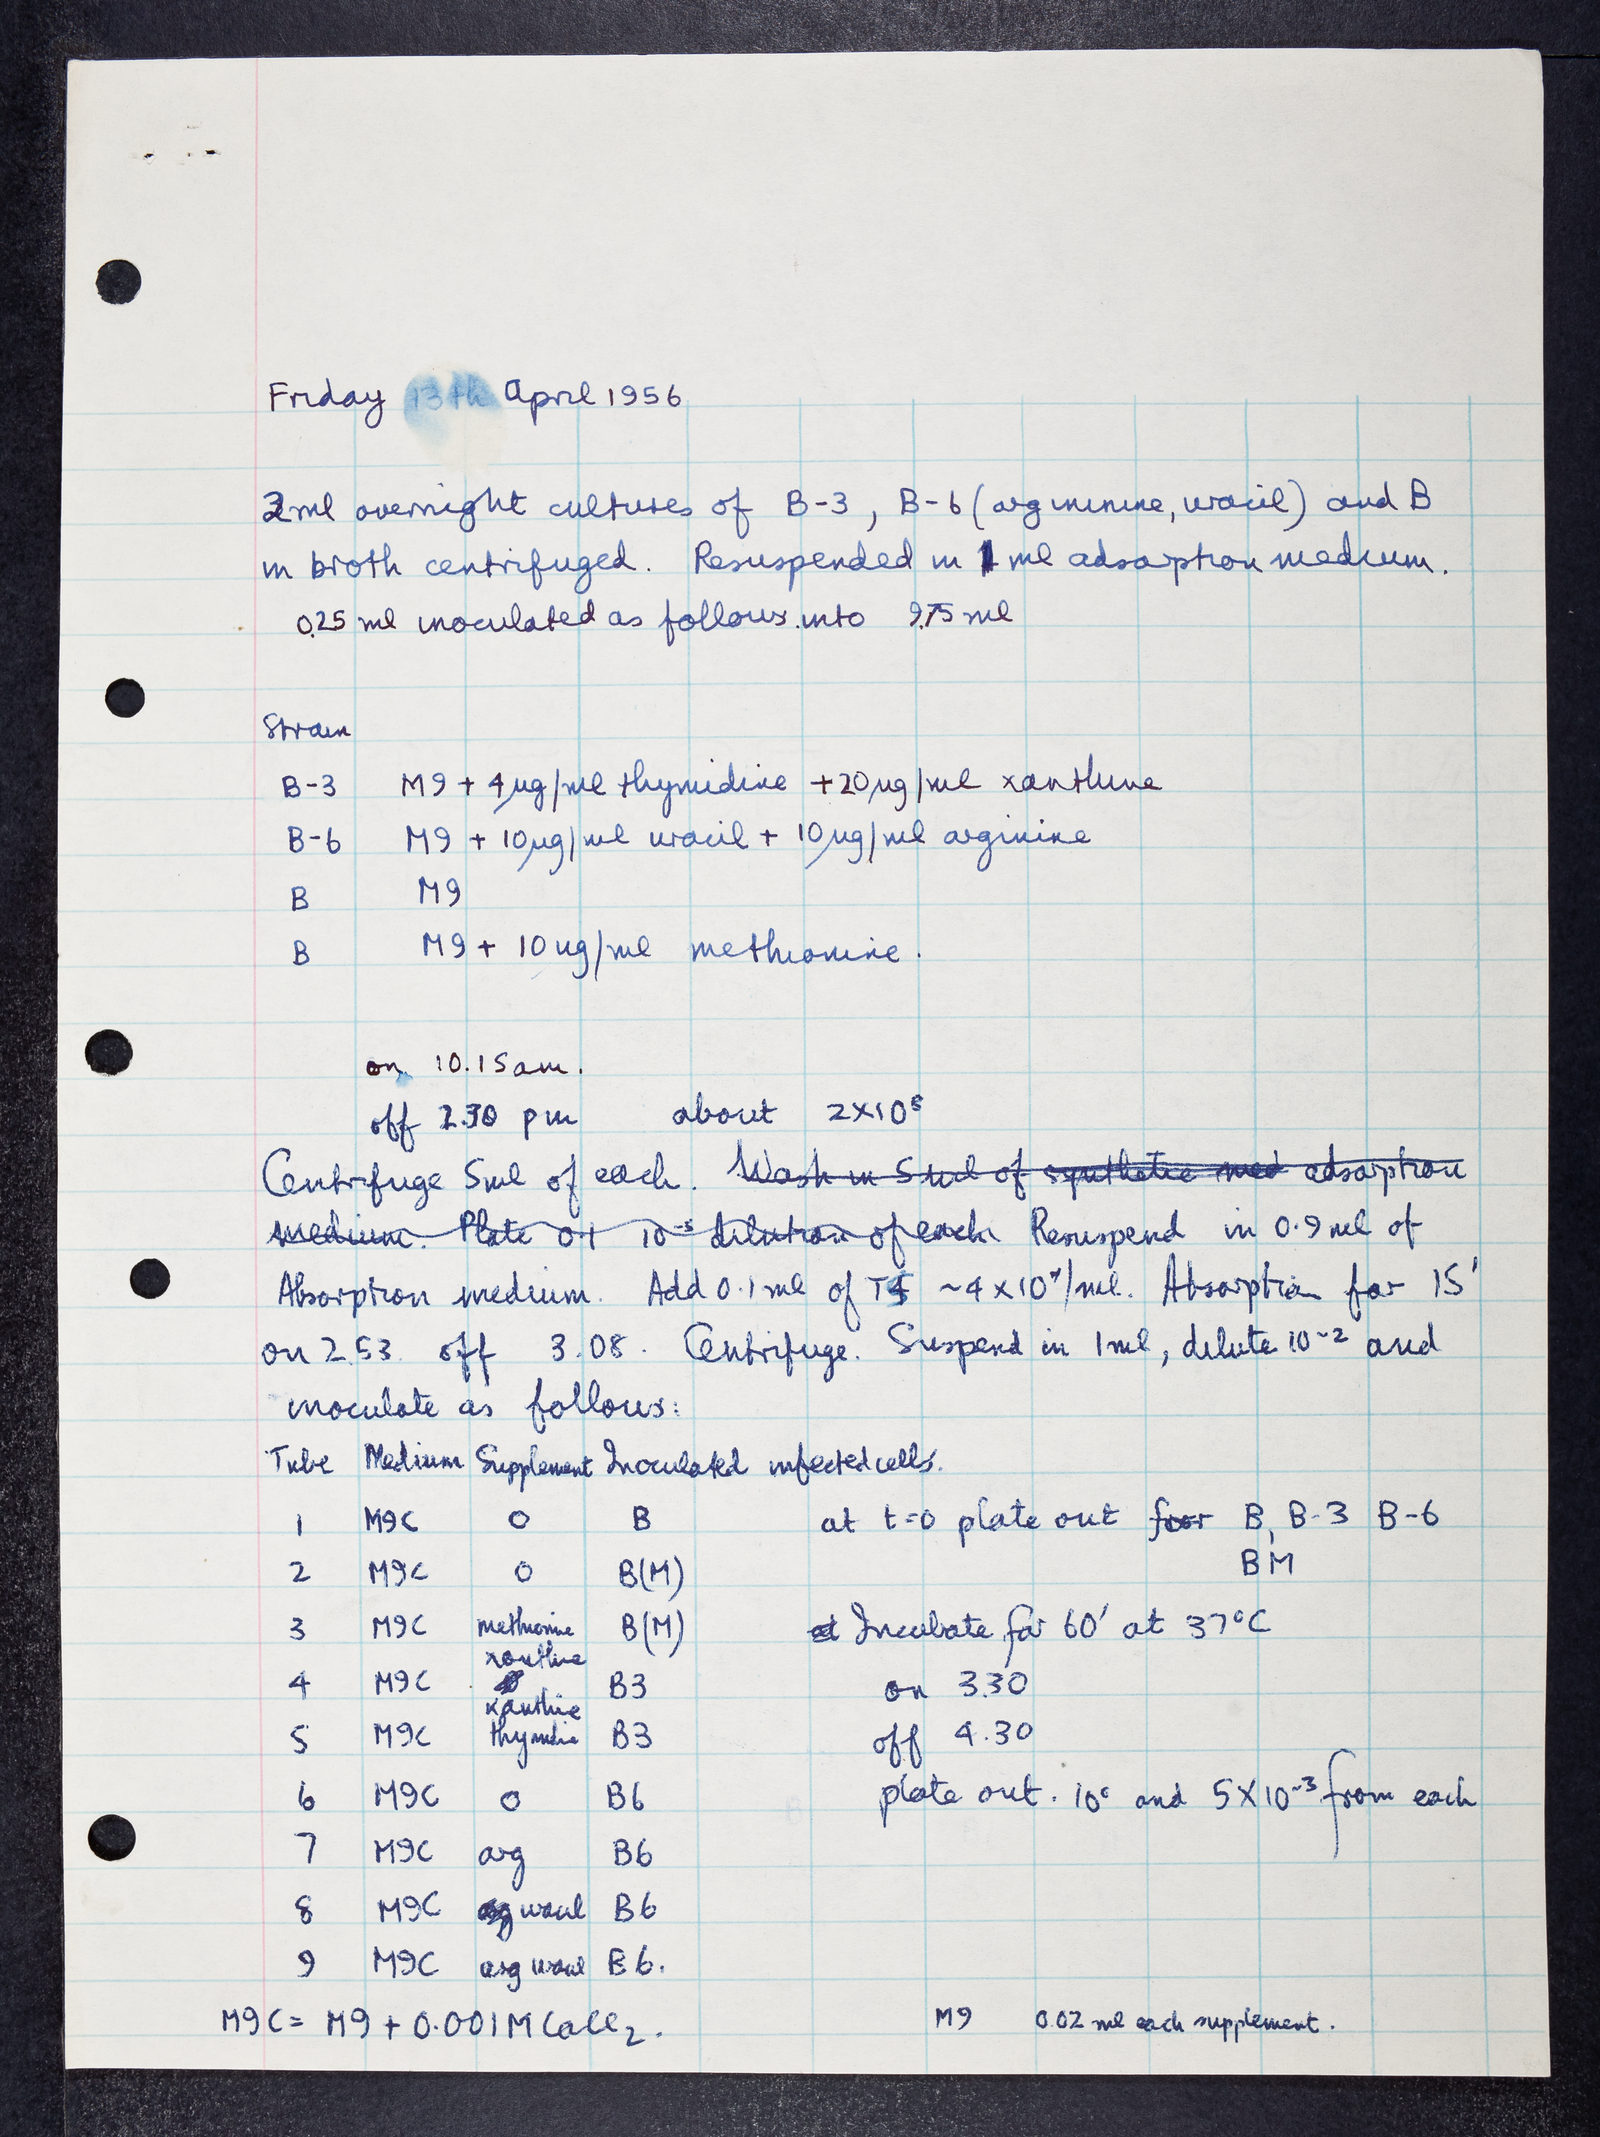 Friday 13th April 1956
2ml overnight cultures of B-3, B-6 (arginine, uracil) and B
in broth centrifuged. Resuspended in 1 ml adsorption medium.
0.25 ml inoculated as follows into 9.75 ml
Strain
B-3 M9 + 4µg/ml thymidine + 20µg/ml xanthine
B-6 M9 + 10µg/ml uracil + 10µg/ml arginine
B M9
B M9 + 10µg/ml methionine.
on 10.15 am.
off 2.30 pm about 2×10⁸
Centrifuge 5ml of each. Wash in 5ml of synthetic med adsorption
medium. Plate 0.1 10⁻⁵ dilution of each Resuspend in 0.9 ml of
Absorption medium. Add 0.1 ml of T4 ~4×10⁷/ml. Absorption for 15'
on 2.53 off 3.08. Centrifuge. Suspend in 1ml, dilute 10⁻² and
inoculate as follows:
Tube Medium Supplement Inoculated infected cells.
1 M9C 0 B at t=0 plate out for B, B-3 B-6
2 M9C 0 B(M) BM
3 M9C methionine B(M) at Incubate for 60' at 37°C
4 M9C xanthine B3 on 3.30
5 M9C xanthine thymidin B3 off 4.30
6 M9C 0 B6 plate out. 10⁰ and 5×10⁻³ from each
7 M9C arg B6
8 M9C uracil B6
9 M9C arg uracil B6.
M9C = M9 + 0.001M CaCl₂. M9 0.02 ml each supplement.